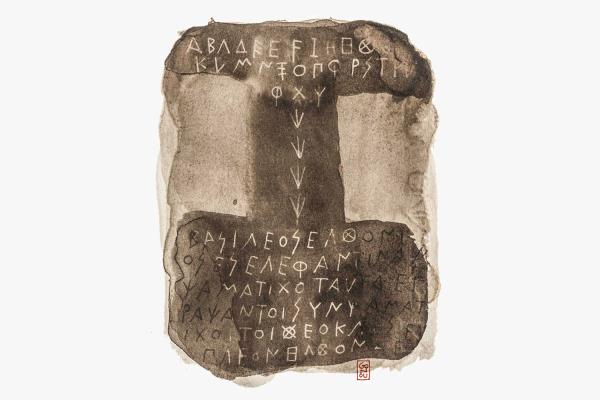 ΑΒΛΔΕ Ε Ϝ Ι Η
Κ Μ Ν Ξ Ο Π Ϙ Ρ Σ Τ
Φ Χ Υ
ΒΑΣΙΛΕΟΣΕΛΘΟΝΤ
ΟΣΕΣΕΛΕΦΑΝΤΙΝΑΝ
ΨΑΜΑΤΙΧΟΤΑΥΤΑΕΓ
ΡΑΨΑΝΤΟΙΣΥΝΨΑΜΑΤ
ΙΧΟΙΤΟΙΘΕΟΚΛ
ΠΛΕΟΝΗΛΘΟΝ